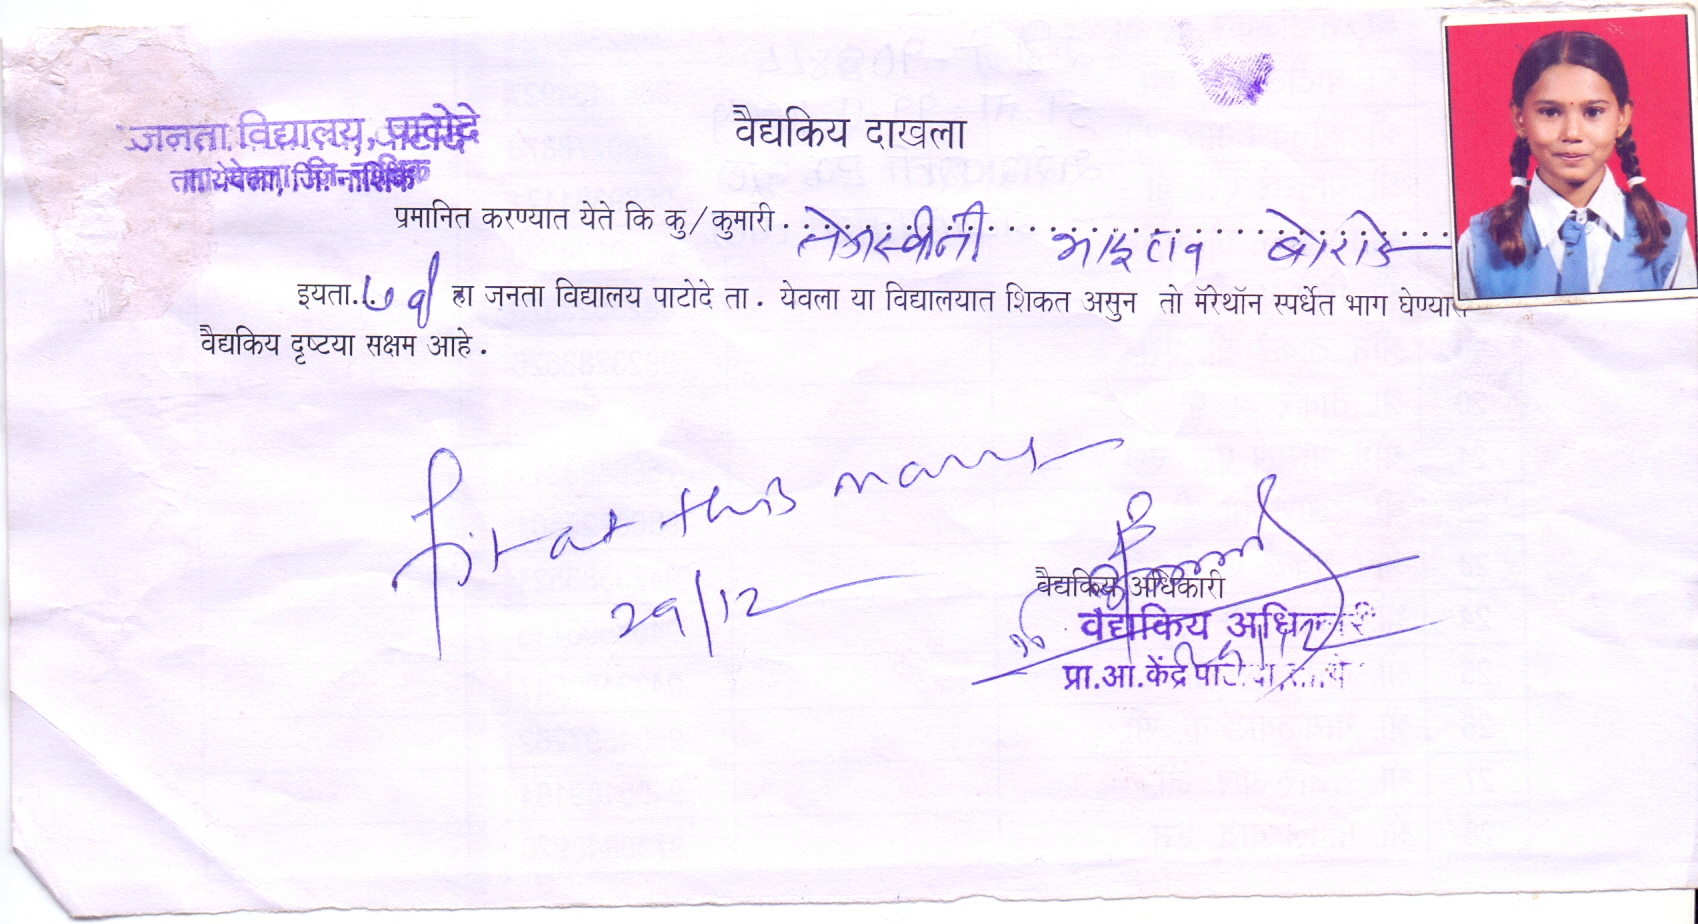 जनता विद्यालय, पाटोदे
ता. येवला, जि. नाशिक
वैद्यकिय दाखला
प्रमानित करण्यात येते कि कु/कुमारी . तेजस्वीनी भाइलाव बोराडे
इयता. ७ वी ह्रा जनता विद्यालय पाटोदे ता . येवला या विद्यालयात शिकत असुन तो मॅरेथॉन स्पर्धेत भाग घेण्यास
वैद्यकिय दृष्टया सक्षम आहे .
fit at this
29/12
वैद्यकिय अधिकारी
वैद्यकिय अधिकारी
प्रा.आ.केंद्र पाटोदा